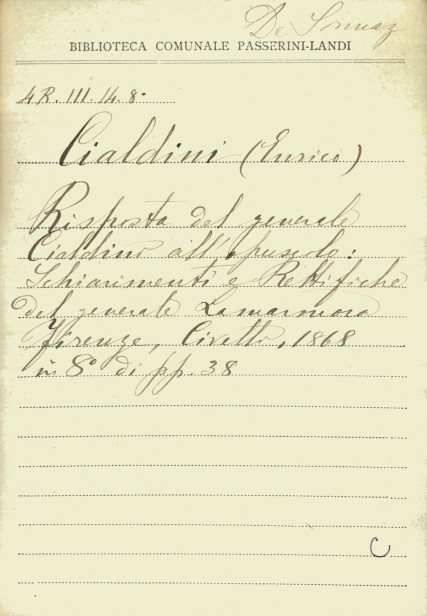 De Sonnaz
BIBLIOTECA COMUNALE PASSERINI-LANDI
4R.III.14.8.
Cialdini (Enrico)
Risposta del generale
Cialdini all'opuscolo:
Schiarimenti e Rettifiche
del generale Lamarmora
Firenze, Civelli, 1868
in 8° di pp. 38
C